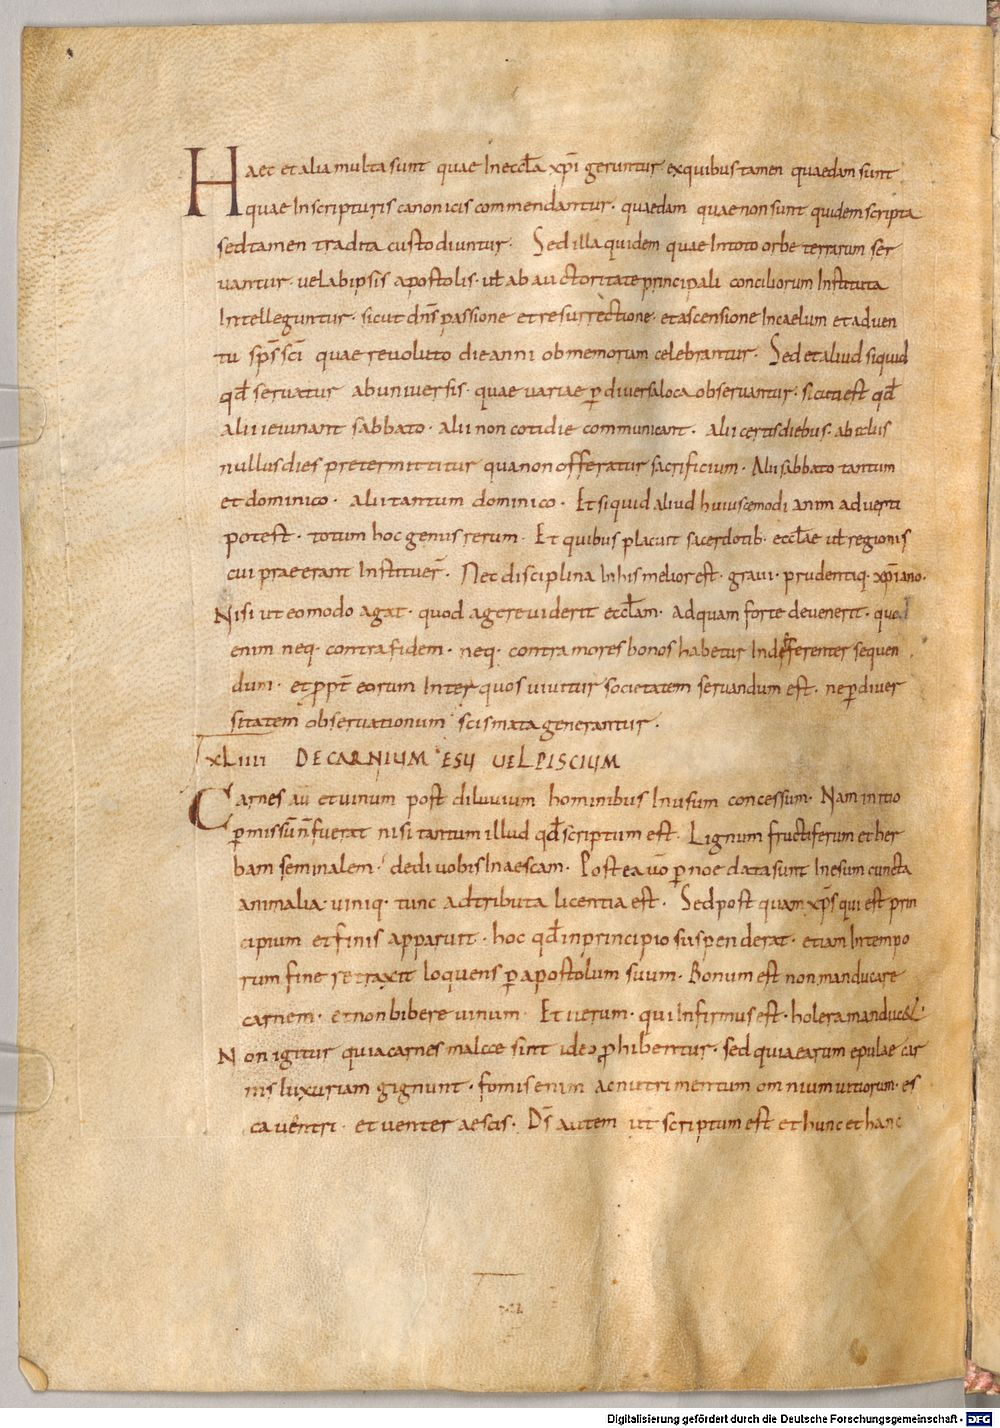 Haec et alia multa sunt quae In eccła xp̄i geruntur ex quibus tamen quaedam sunt
quae In scripturis canonicis commendantur· quaedam quae non sunt quidem scripta
sed tamen tradita custodiuntur· Sed illa quidem quae In toto orbe terrarum ser
vantur· vel ab ipsis apostolis· uł ab auctoritate principali conciliorum Instituta
Intelleguntur· sicut dn̄s passione et resurrectione· et ascensione In caelum et adven
tu sp̄s sc̄i quae revoluto die anni ob memoriam celebrantur· Sed et aliud siquid
qd̄ servatur ab universis· quae variae ꝑ diversa loca observantur· sicuti est qd̄
alii ieiunant sabbato· alii non cotidie communicant· alii certis diebus· ab aliis
nullus dies pretermittitur qua non offeratur sacrificium· Alii sabbato tantum
et dominico· alii tantum dominico· Et siquid aliud huiuscemodi anim adverti
potest· totum hoc genus rerum Et quibus placuit sacerdotib· eccłae uł regionis
cui praeerant Instituer̄· Nec disciplina In his melior est· gravi· prudentiq· xp̄iano·
Nisi ut eo modo agat· quod agere viderit eccłam· ad quam forte devenerit· quod
enim neq· contra fidem· neq· contra mores bonos habetur Indifferenter sequen
dum· et ꝓpt̄ eorum Inter quos vivitur societatem servandum est· ne ꝑ diver
sitatem observationum scismata generantur·
XLIIII DE CARNIUM ESU UEL PISCIUM
Carnes aū et vinum post diluvium hominibus In usum concessum· Nam initio
ꝑmissū n̄ fuerat nisi tantum illud qd̄ scriptum est· Lignum fructiferum et her
bam seminalem· dedi vobis In aescam· Postea ūo ꝑ noe data sunt In esum cuncta
animalia· viniq· tunc adtributa licentia est· Sed postquam xp̄s qui est prin
cipium et finis apparuit· hoc qd̄ in principio suspenderat· etiam In tempo
rum fine retraxit loquens ꝑ apostolum suum· Bonum est non manducare
carnem· et non bibere vinum Et iterum· qui Infirmus est· holera manducet·
Non igitur quia carnes malae sint ideo ꝓhibentur· sed quia earum epulae car
nis luxuriam gignunt· fomis enim ac nutrimentum omnium vitiorum· es
ca ventri· et venter aescis· Dś autem ut scriptum est et hunc et hanc
Digitalisierung gefördert durch die Deutsche Forschungsgemeinschaft - DFG